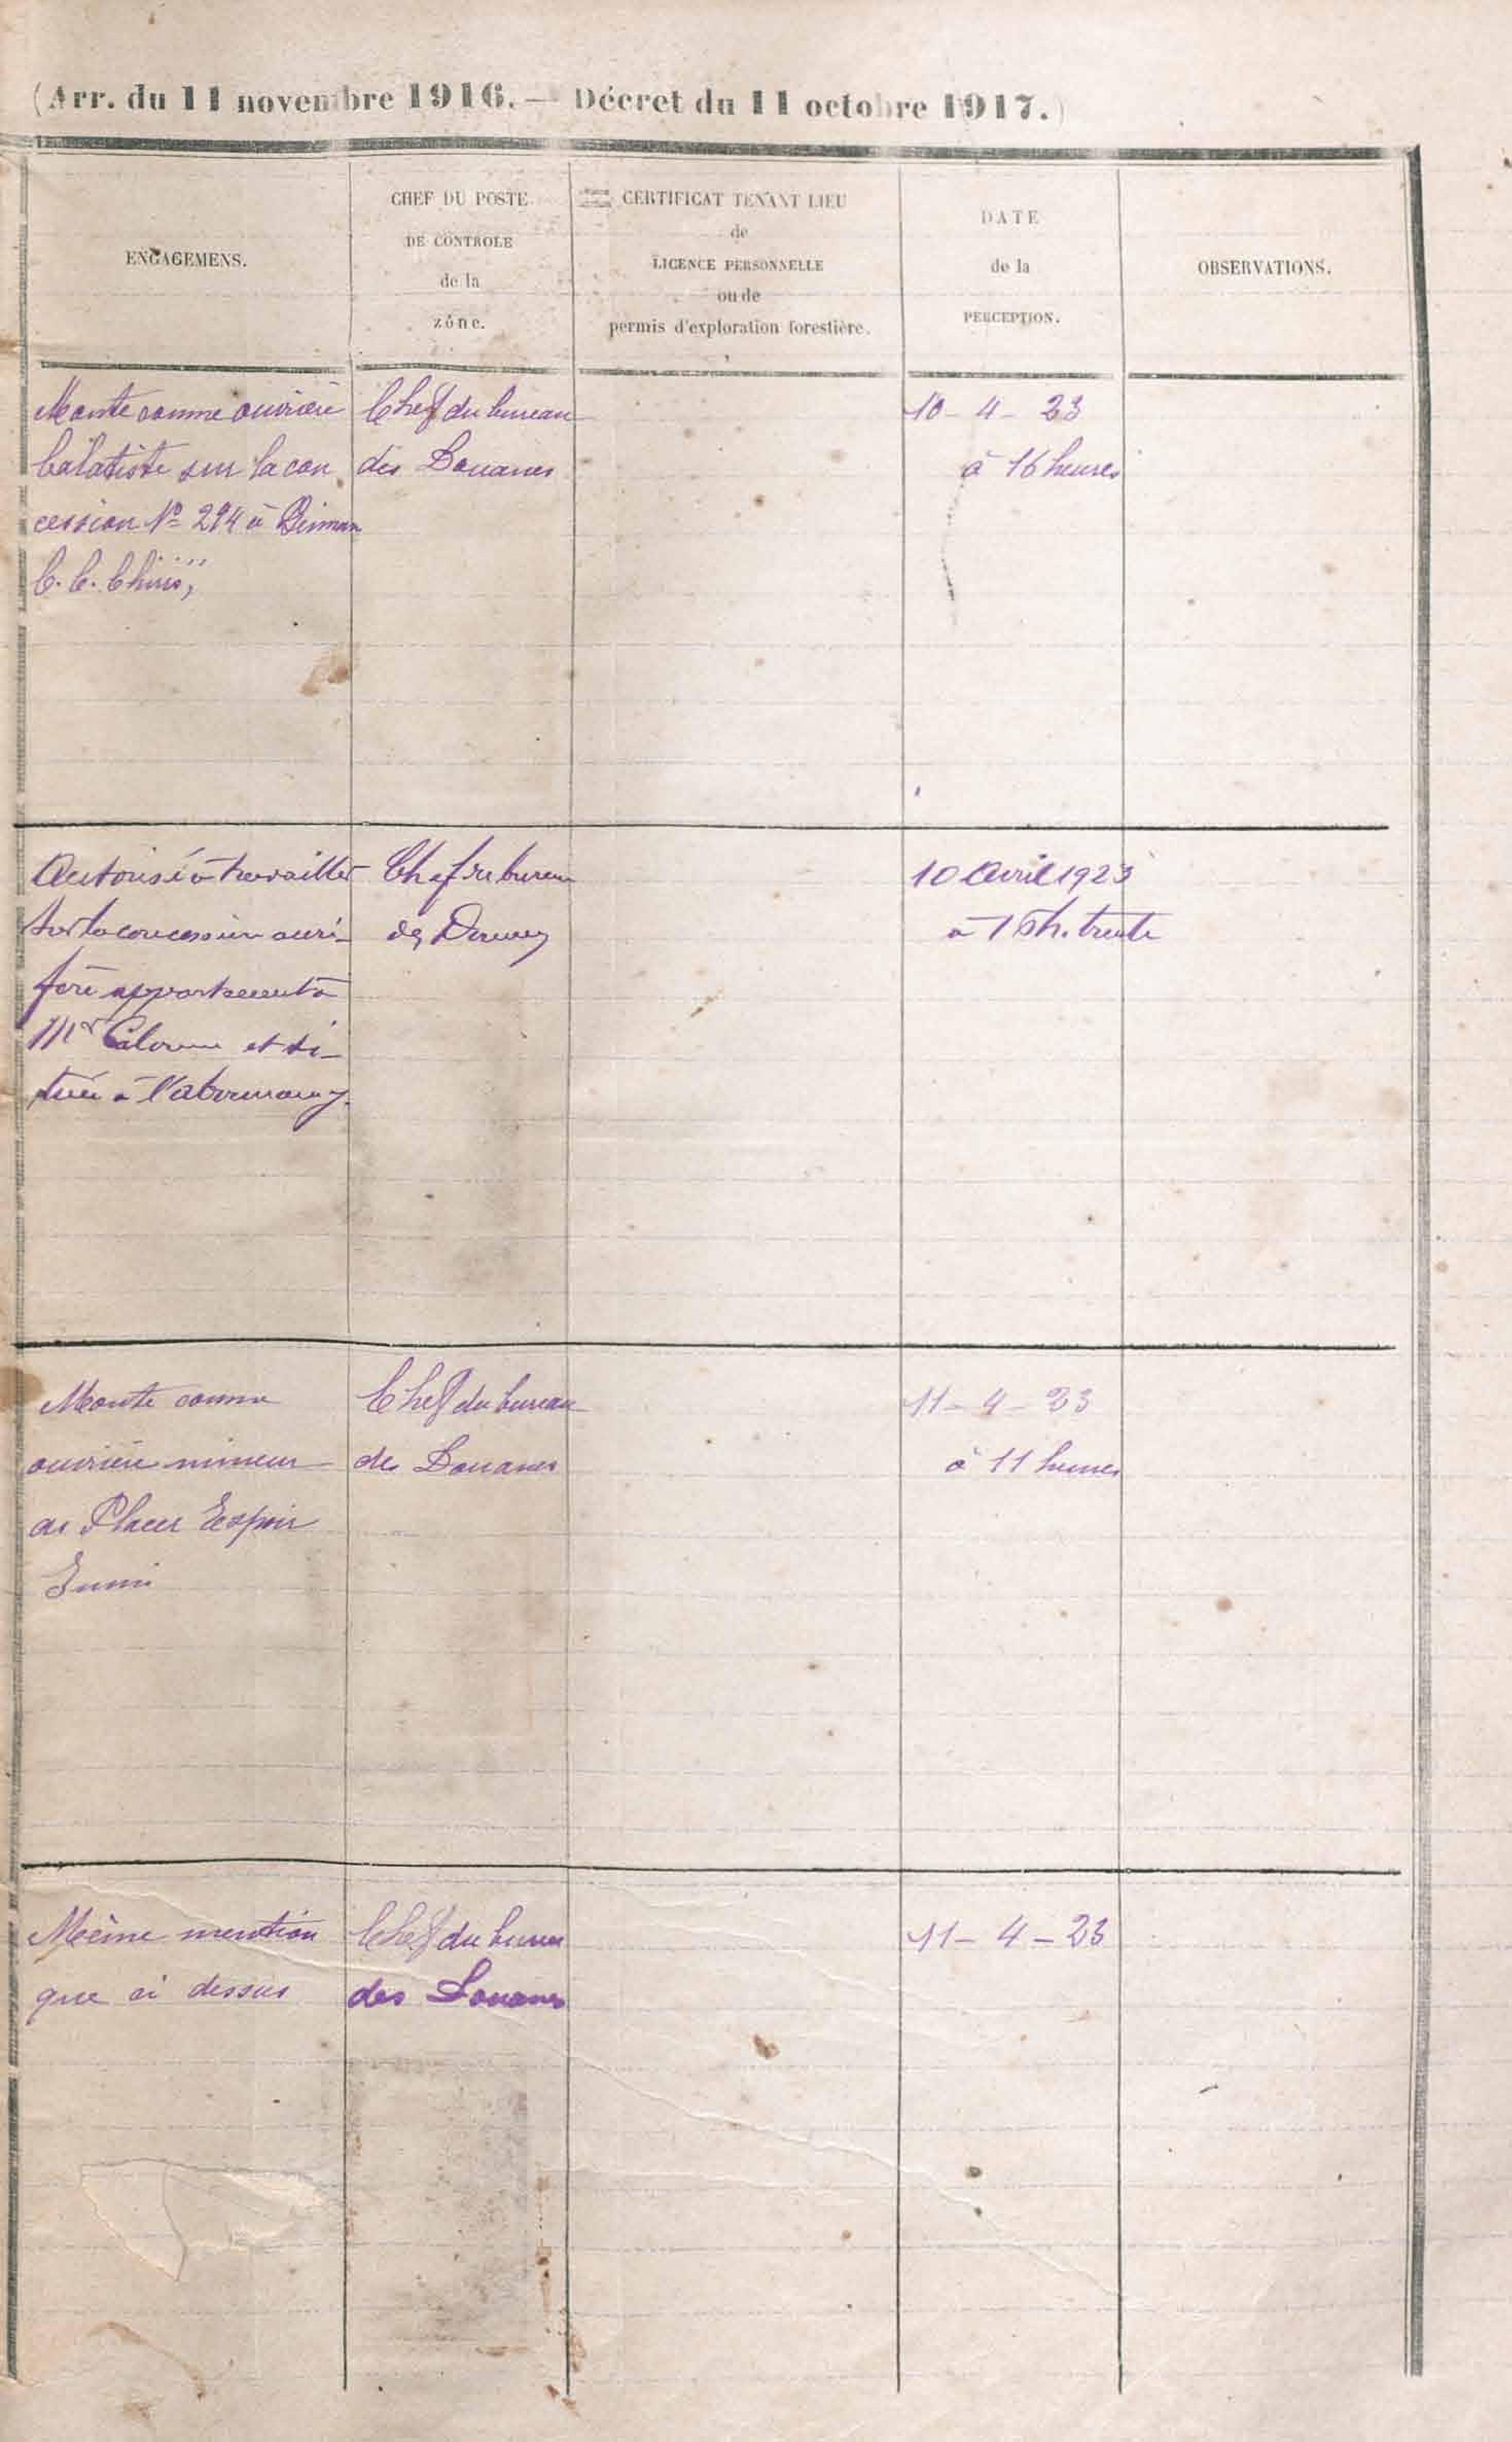 (Arr. du 11 novembre 1916. — Décret du 11 octobre 1917.)
ENGAGEMENS.
CHEF DU POSTE
DE CONTROLE
de la
zône.
CERTIFICAT TENANT LIEU
de
LICENCE PERSONNELLE
ou de
permis d'exploration forestière.
DATE
de la
PERCEPTION.
OBSERVATIONS.
Monte comme ouvrière
balatiste sur la con
cession No 294 à
C. C. Chiris,
Chef du bureau
des Douanes
10 - 4 - 23
à 16 heures
Autorisé à travailler
sur la concession auri-
fère appartenant à
Mr et si-
tuée à l'abounamy.
Chef du bureau
des Douanes
10 Avril 1923
à 15h. trente
Monte comme
ouvrière mineur
au Placer Espoir
Inini
Chef du bureau
des Douanes
11 - 4 - 23
à 11 heures
Même mention
que ci dessus
Chef du bureau
des Douanes
11 - 4 - 23